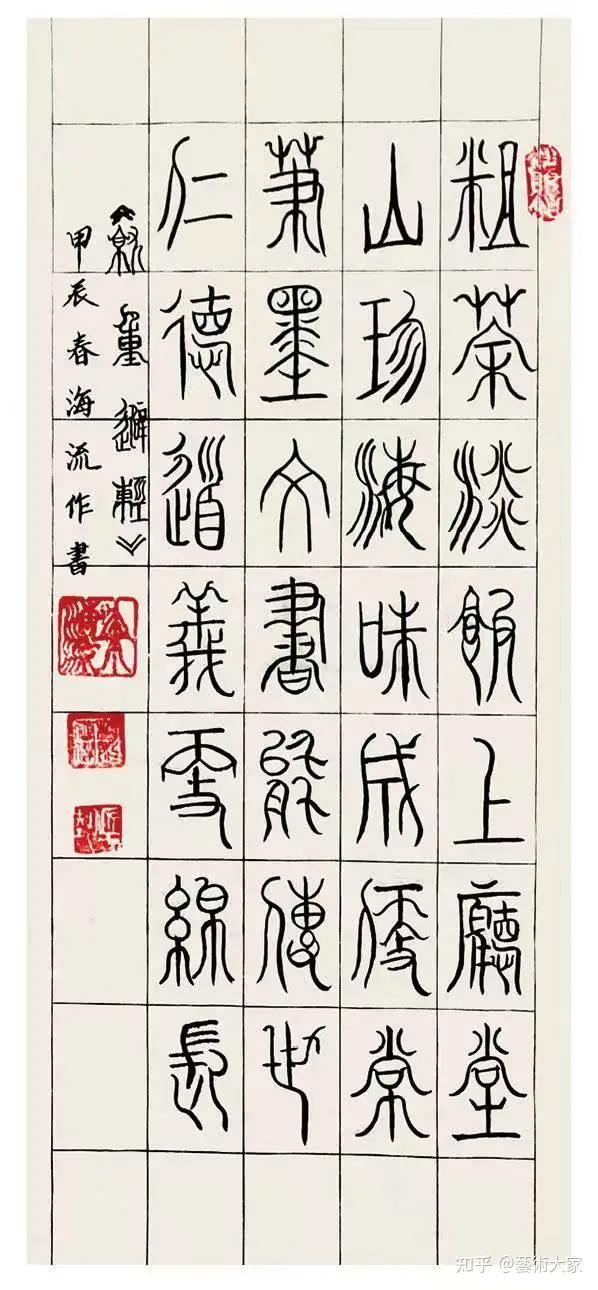 粗茶淡飯上廳堂
山珍海味成便常
筆墨文書能傳世
仁德道義更綿長
重避輕》
甲辰春海流作書
知乎 @藝術大家